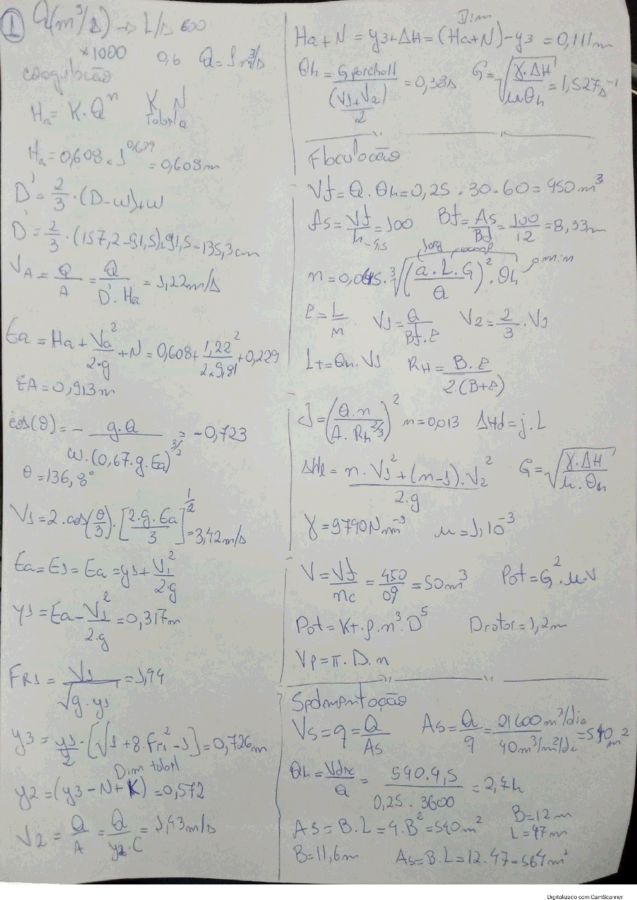 1 Q(m³/s) → L/s 600
×1000 0,6 Q=1m³/s
coagulação
Ha = K.Qⁿ K N tabela
Ha=0,608.1^0,627=0,608m
D' = 2/3 . (D-w)+w
D' = 2/3 . (157,2-91,5)+91,5=135,3cm
VA = Q/A = Q/D'.Ha = 1,22m/s
Ea = Ha + Va²/2.g + N = 0,608 + 1,22²/2.9,81 + 0,229
EA=0,913m
cos(θ) = - g.Q/w.(0,67.g.Ea)^3/2 = -0,723
θ=136,8°
V1=2.cos(θ/3).[2.g.Ea/3]^1/2=3,42m/s
Ea=E1=Ea=y1+V1²/2g
y1=Ea-V1²/2.g=0,317m
FR1=V1/√g.y1=1,94
y3=y1/2.[√1+8.Fr1²-1]=0,726m
Dim tabel
y2=(y3-N+K)=0,572
V2=Q/A=Q/y2.C=1,43m/s
Dim
Ha+N=y3+ΔH=(Ha+N)-y3=0,111m
θh=Gparchall/(V1+V2)/2=0,38s G=√γ.ΔH/μ.θh=1,527s⁻¹
Floculação
Vf=Q.θh=0,25.30.60=450m³
As=Vf/h-4,5=100 Bf=As/Bf=100/12=8,33m
n=0,045.³√(a.L.G/Q)².θh min
e=L/m V1=Q/Bf.e V2=2/3.V1
Lt=θh.V1 RH=B.e/2(B+e)
J=(Q.n/A.Rh^2/3)² n=0,013 ΔHd=j.L
ΔHl=n.V1²+(n-1).V2²/2.g G=√γ.ΔH/μ.θh
γ=9790Nm⁻³ μ=1,10⁻³
V=Vf/nc=450/09=50m³ Pot=G².μ.V
Pot=Kt.ρ.n³.D⁵ Drotor=1,2m
Vp=π.D.n
Sedimentação
Vs=q=Q/As As=Q/q=21600m³/dia/40m³/m²/d=540m²
θh=Vdec/Q=540.4,5/0,25.3600=2,7h
As=B.L=4.B²=540m² B=12m
L=47m
B=11,6m As=B.L=12.47=564m²
Digitalizado com CamScanner